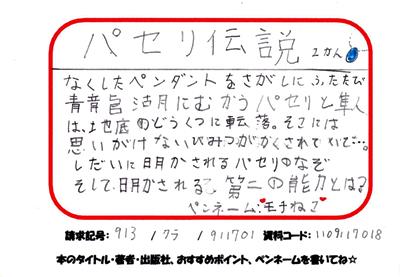 パセリ伝説 2かん
なくしたペンダントをさがしにふたたび
青龍湖にむかうパセリと隼人
は、地底のどうくつに転落。そこには
思いがけないひみつがかくされていて…。
しだいに明かされるパセリのなぞ
そして、明かされる 第二の能力とは?
ペンネーム:モチねこ
請求記号: 913 / フラ / 911701 資料コード: 1109117018
本のタイトル・著者・出版社、おすすめポイント、ペンネームを書いてね☆